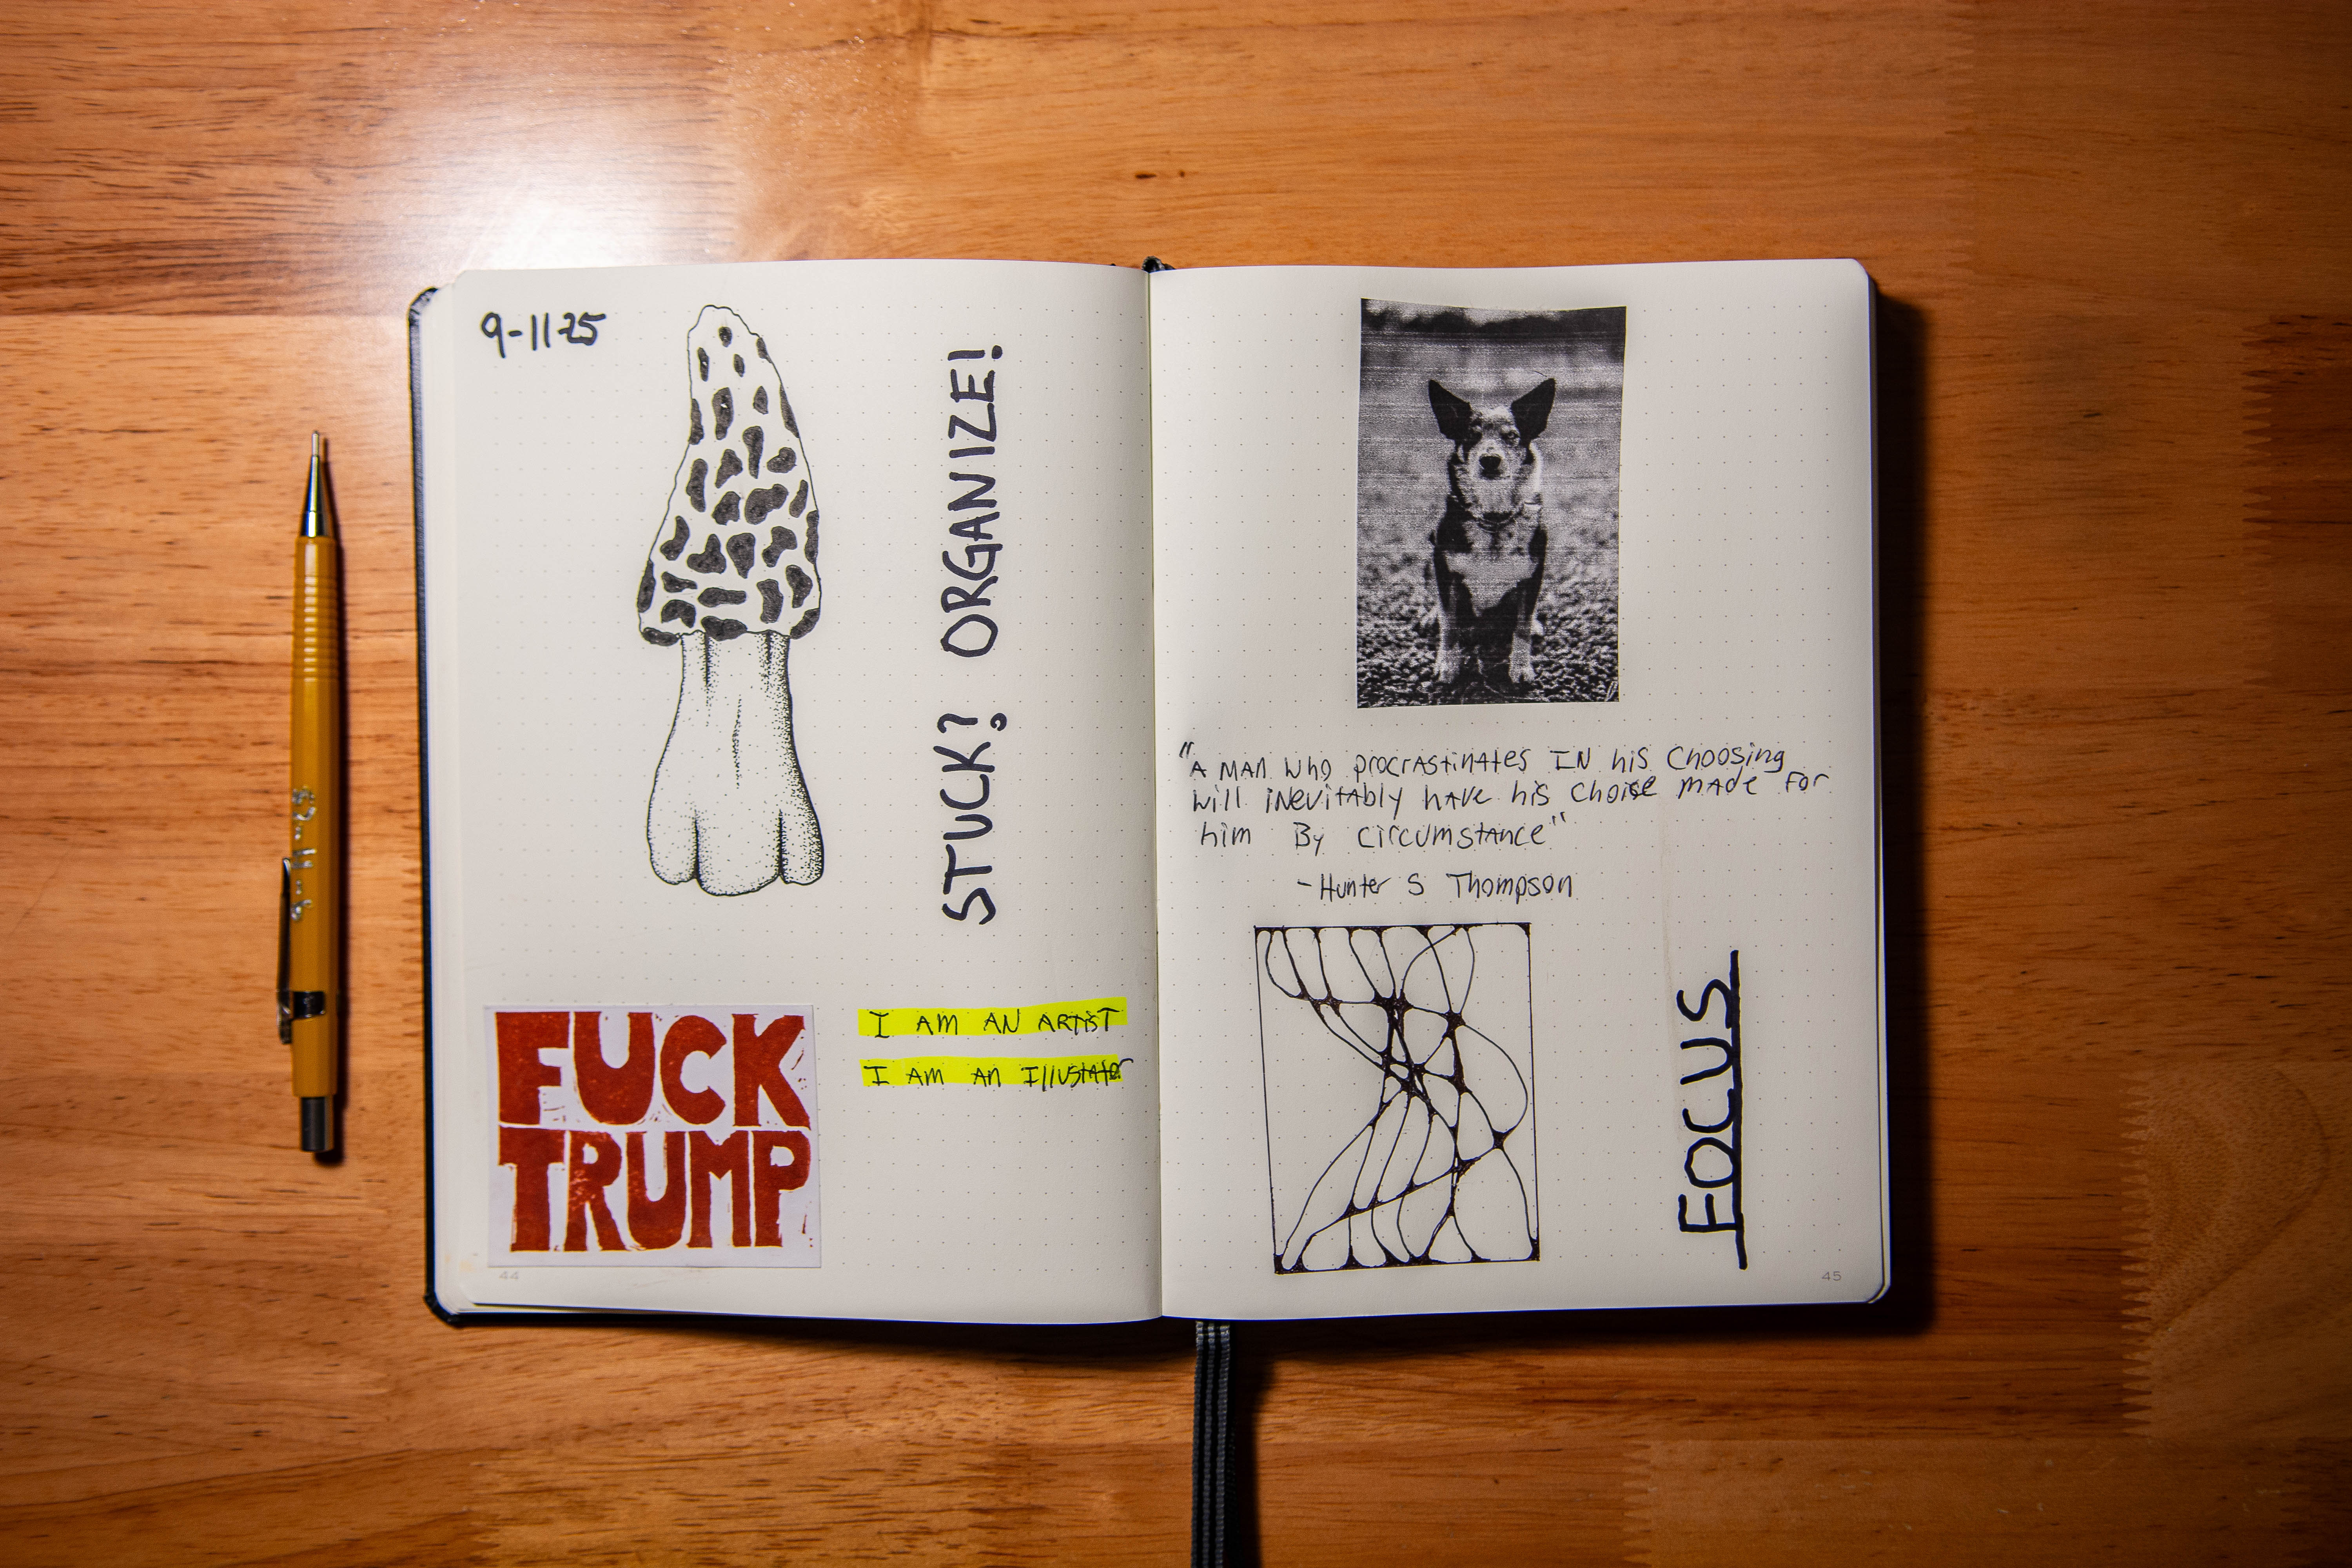 9-11-25
STUCK? ORGANIZE!
FUCK
TRUMP
I AM AN ARTIST
I AM AN IllUStAtor
44
"A MAN Who procrAstinAtes IN his Choosing
will iNevitAbly hAve his choise mAde For
him By circumstAnce"
-Hunter S Thompson
FOCUS
45